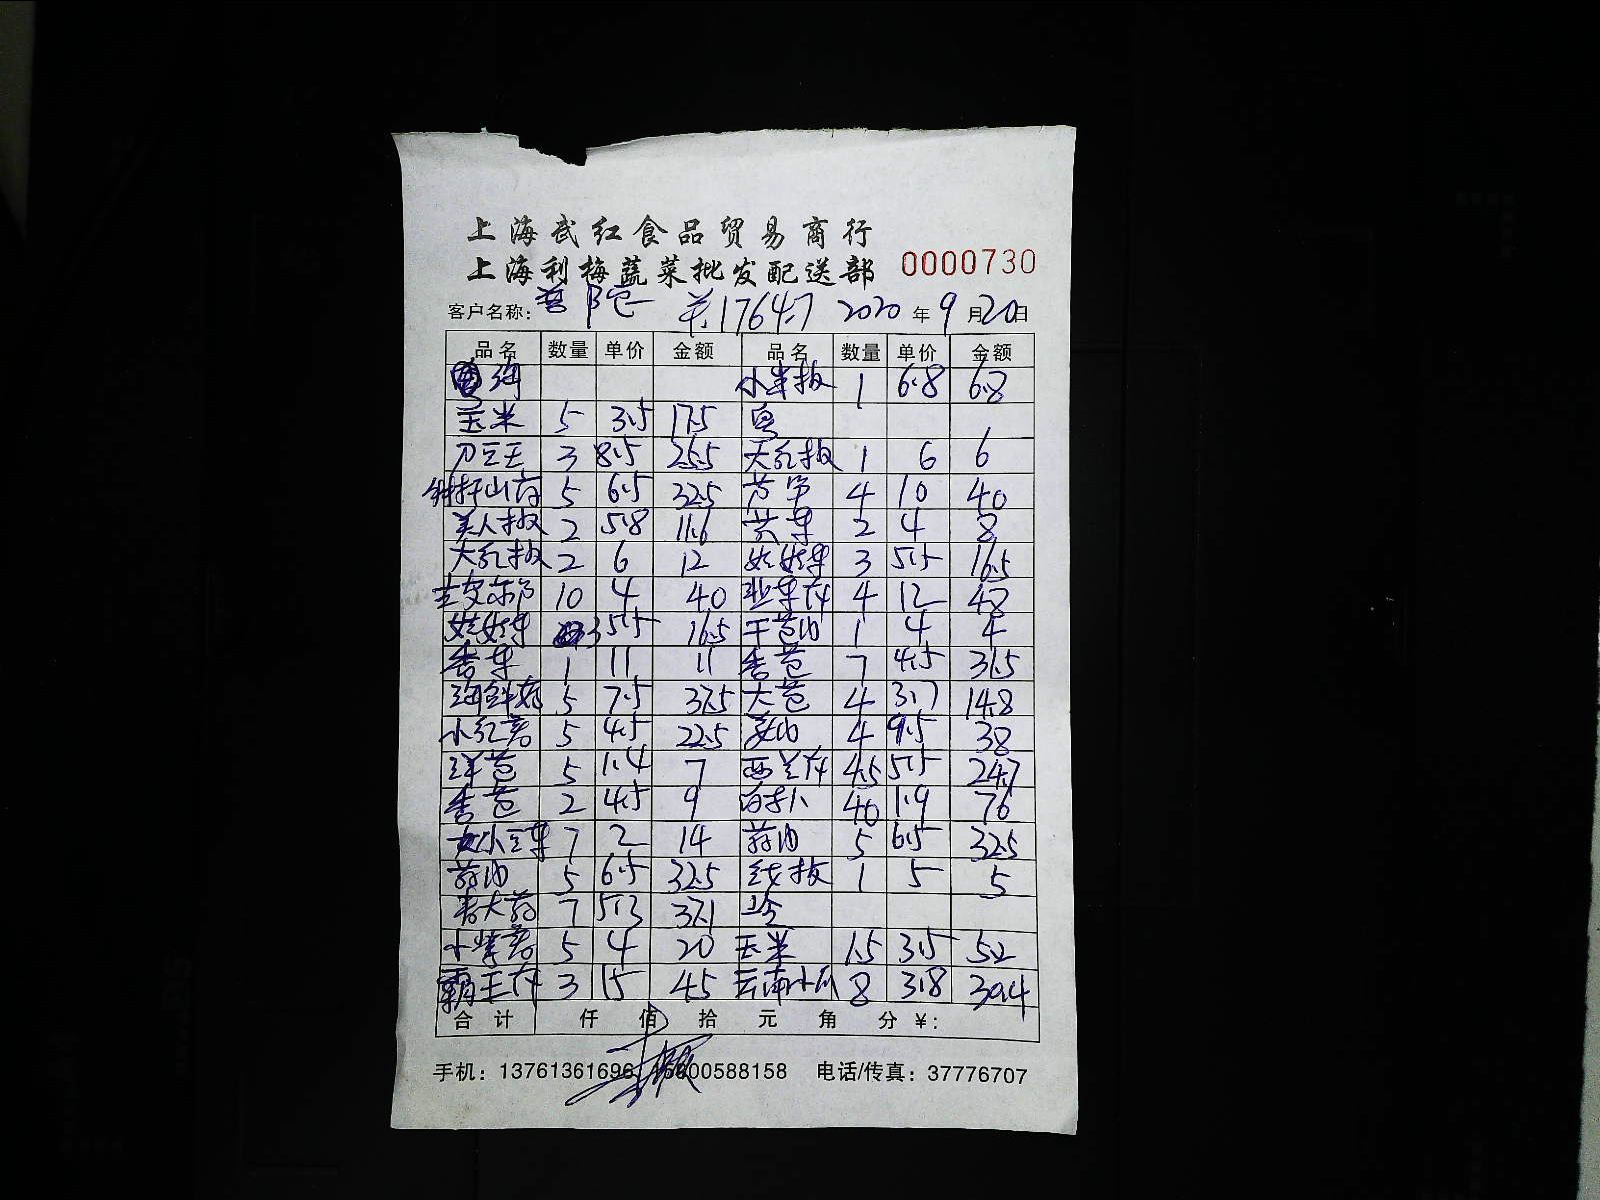 上海武红食品贸易商行
上海利梅蔬菜批发配送部 0000730
客户名称: 普陀 共17647 2020年9月20日
品名 数量 单价 金额 品名 数量 单价 金额
小米椒 1 6.8 6.8
玉米 5 3.5 17.5 粤
刀豆王 3 8.5 25.5 大红椒 1 6 6
铁杆山药 5 6.5 32.5 4 10 40
美人椒 2 5.8 11.6 2 4 8
大红椒 2 6 12 娃娃菜 3 5.5 16.5
10 4 40 韭菜花 4 12 48
娃娃菜 3 5.5 16.5 干葱 1 4 4
香菜 1 11 11 香葱 7 4.5 31.5
海鲜菇 5 7.5 37.5 大葱 4 3.7 14.8
小红 5 4.5 22.5 4 9.5 38
洋葱 5 1.4 7 西兰花 4.5 5.5 24.7
香葱 2 4.5 9 40 1.9 76
7 2 14 蒜 5 6.5 32.5
蒜 5 6.5 32.5 线椒 1 5 5
7 5.3 37.1
小 5 4 20 玉米 1.5 3.5 5.2
霸王花 3 15 45 云南小瓜 8 3.8 30.4
合计 仟 佰 拾 元 角 分 ¥:
手机: 13761361696 15800588158 电话/传真: 37776707